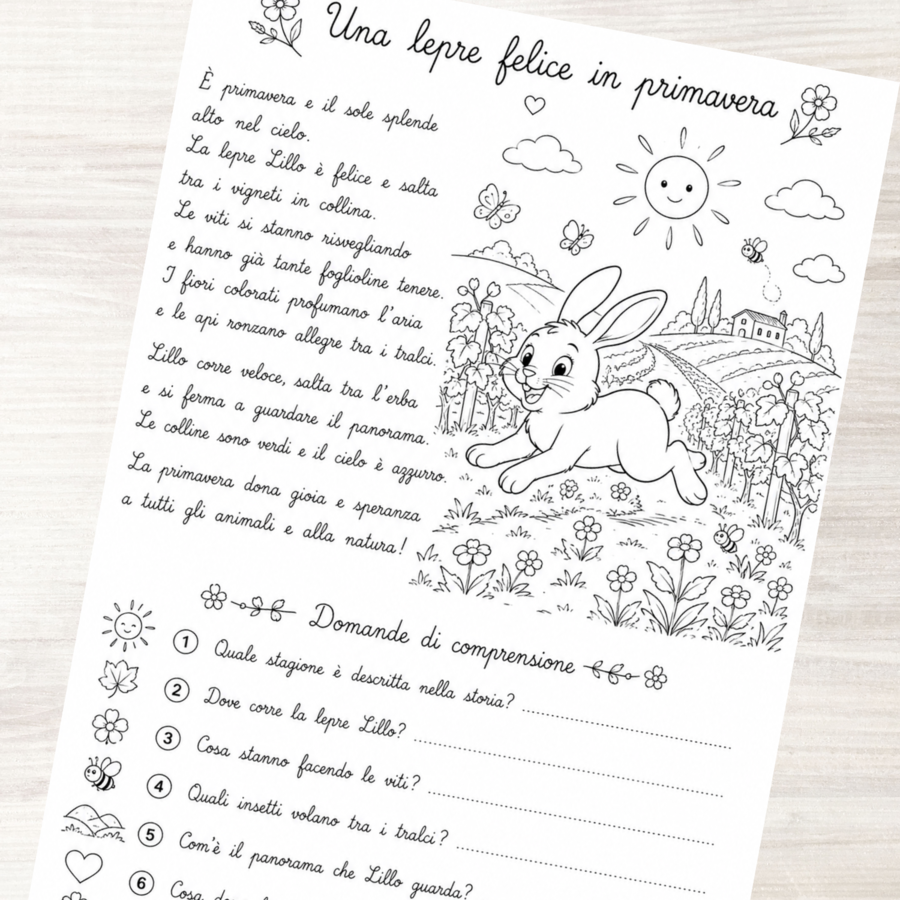 Una lepre felice in primavera
È primavera e il sole splende
alto nel cielo.
La lepre Lillo è felice e salta
tra i vigneti in collina.
Le viti si stanno risvegliando
e hanno già tante foglioline tenere.
I fiori colorati profumano l'aria
e le api ronzano allegre tra i tralci.
Lillo corre veloce, salta tra l'erba
e si ferma a guardare il panorama.
Le colline sono verdi e il cielo è azzurro.
La primavera dona gioia e speranza
a tutti gli animali e alla natura!
Domande di comprensione
1 Quale stagione è descritta nella storia?
2 Dove corre la lepre Lillo?
3 Cosa stanno facendo le viti?
4 Quali insetti volano tra i tralci?
5 Com'è il panorama che Lillo guarda?
6 Cosa